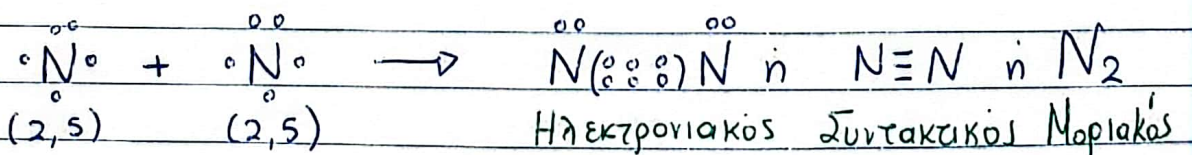 ·N· + ·N· → N(:::)N ή N≡N ή N₂
(2,5) (2,5) Ηλεκτρονιακός Συντακτικός Μοριακός